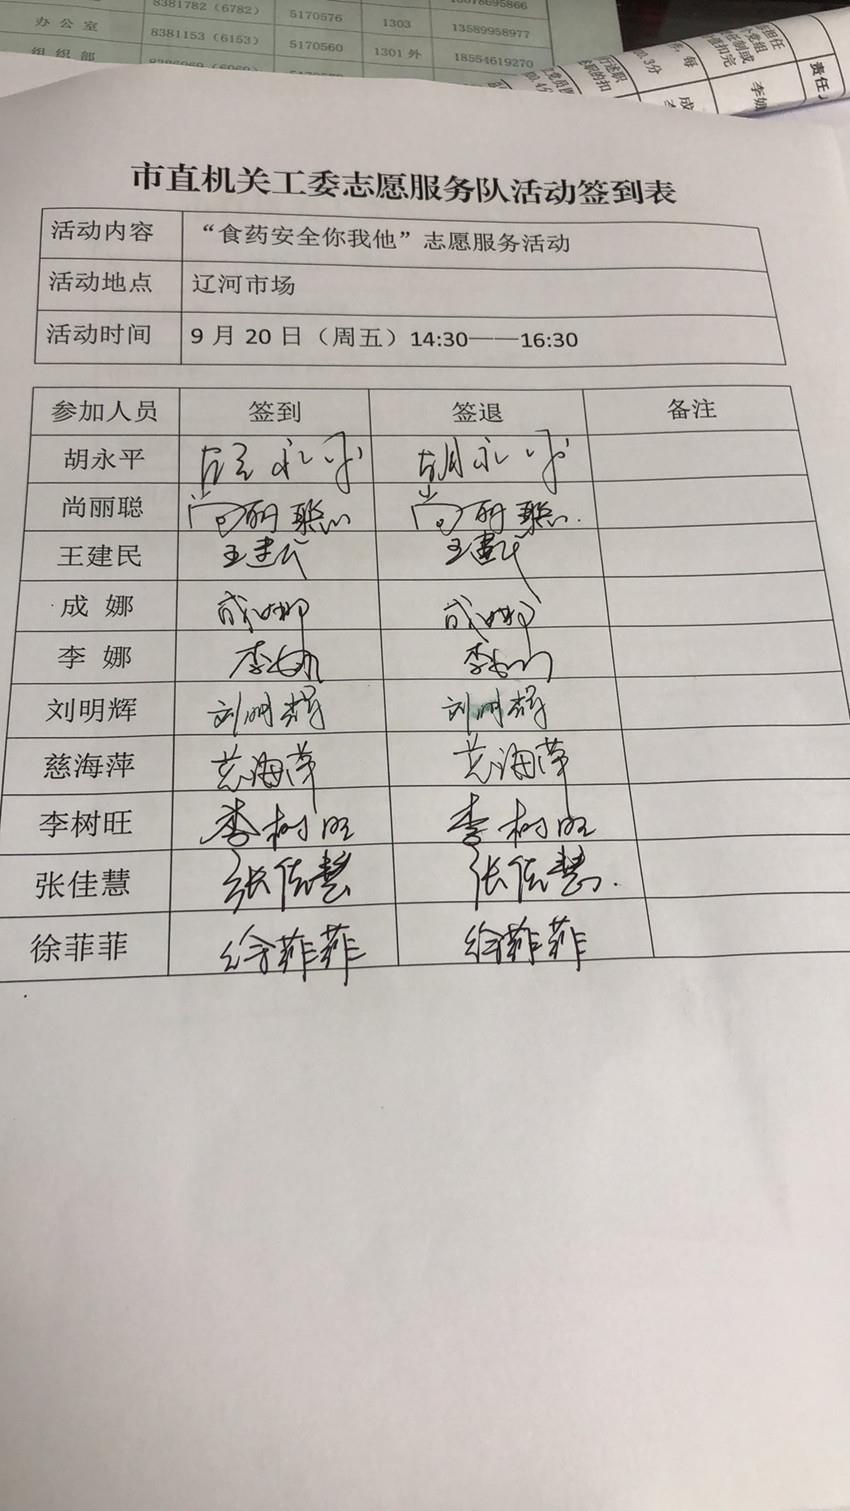 8381782（6782） 5170576
办公室 8381153（6153） 5170560 1303 13589958977
组织部 1301外 18554619270
责任
李娥
市直机关工委志愿服务队活动签到表
活动内容 “食药安全你我他”志愿服务活动
活动地点 辽河市场
活动时间 9月20日（周五）14:30——16:30
参加人员 签到 签退 备注
胡永平 胡永平 胡永平
尚丽聪 尚丽聪 尚丽聪.
王建民 王建民 王建民
成 娜 成娜 成娜
李 娜 李娜 李娜
刘明辉 刘明辉 刘明辉
慈海萍 慈海萍 慈海萍
李树旺 李树旺 李树旺
张佳慧 张佳慧 张佳慧.
徐菲菲 徐菲菲 徐菲菲